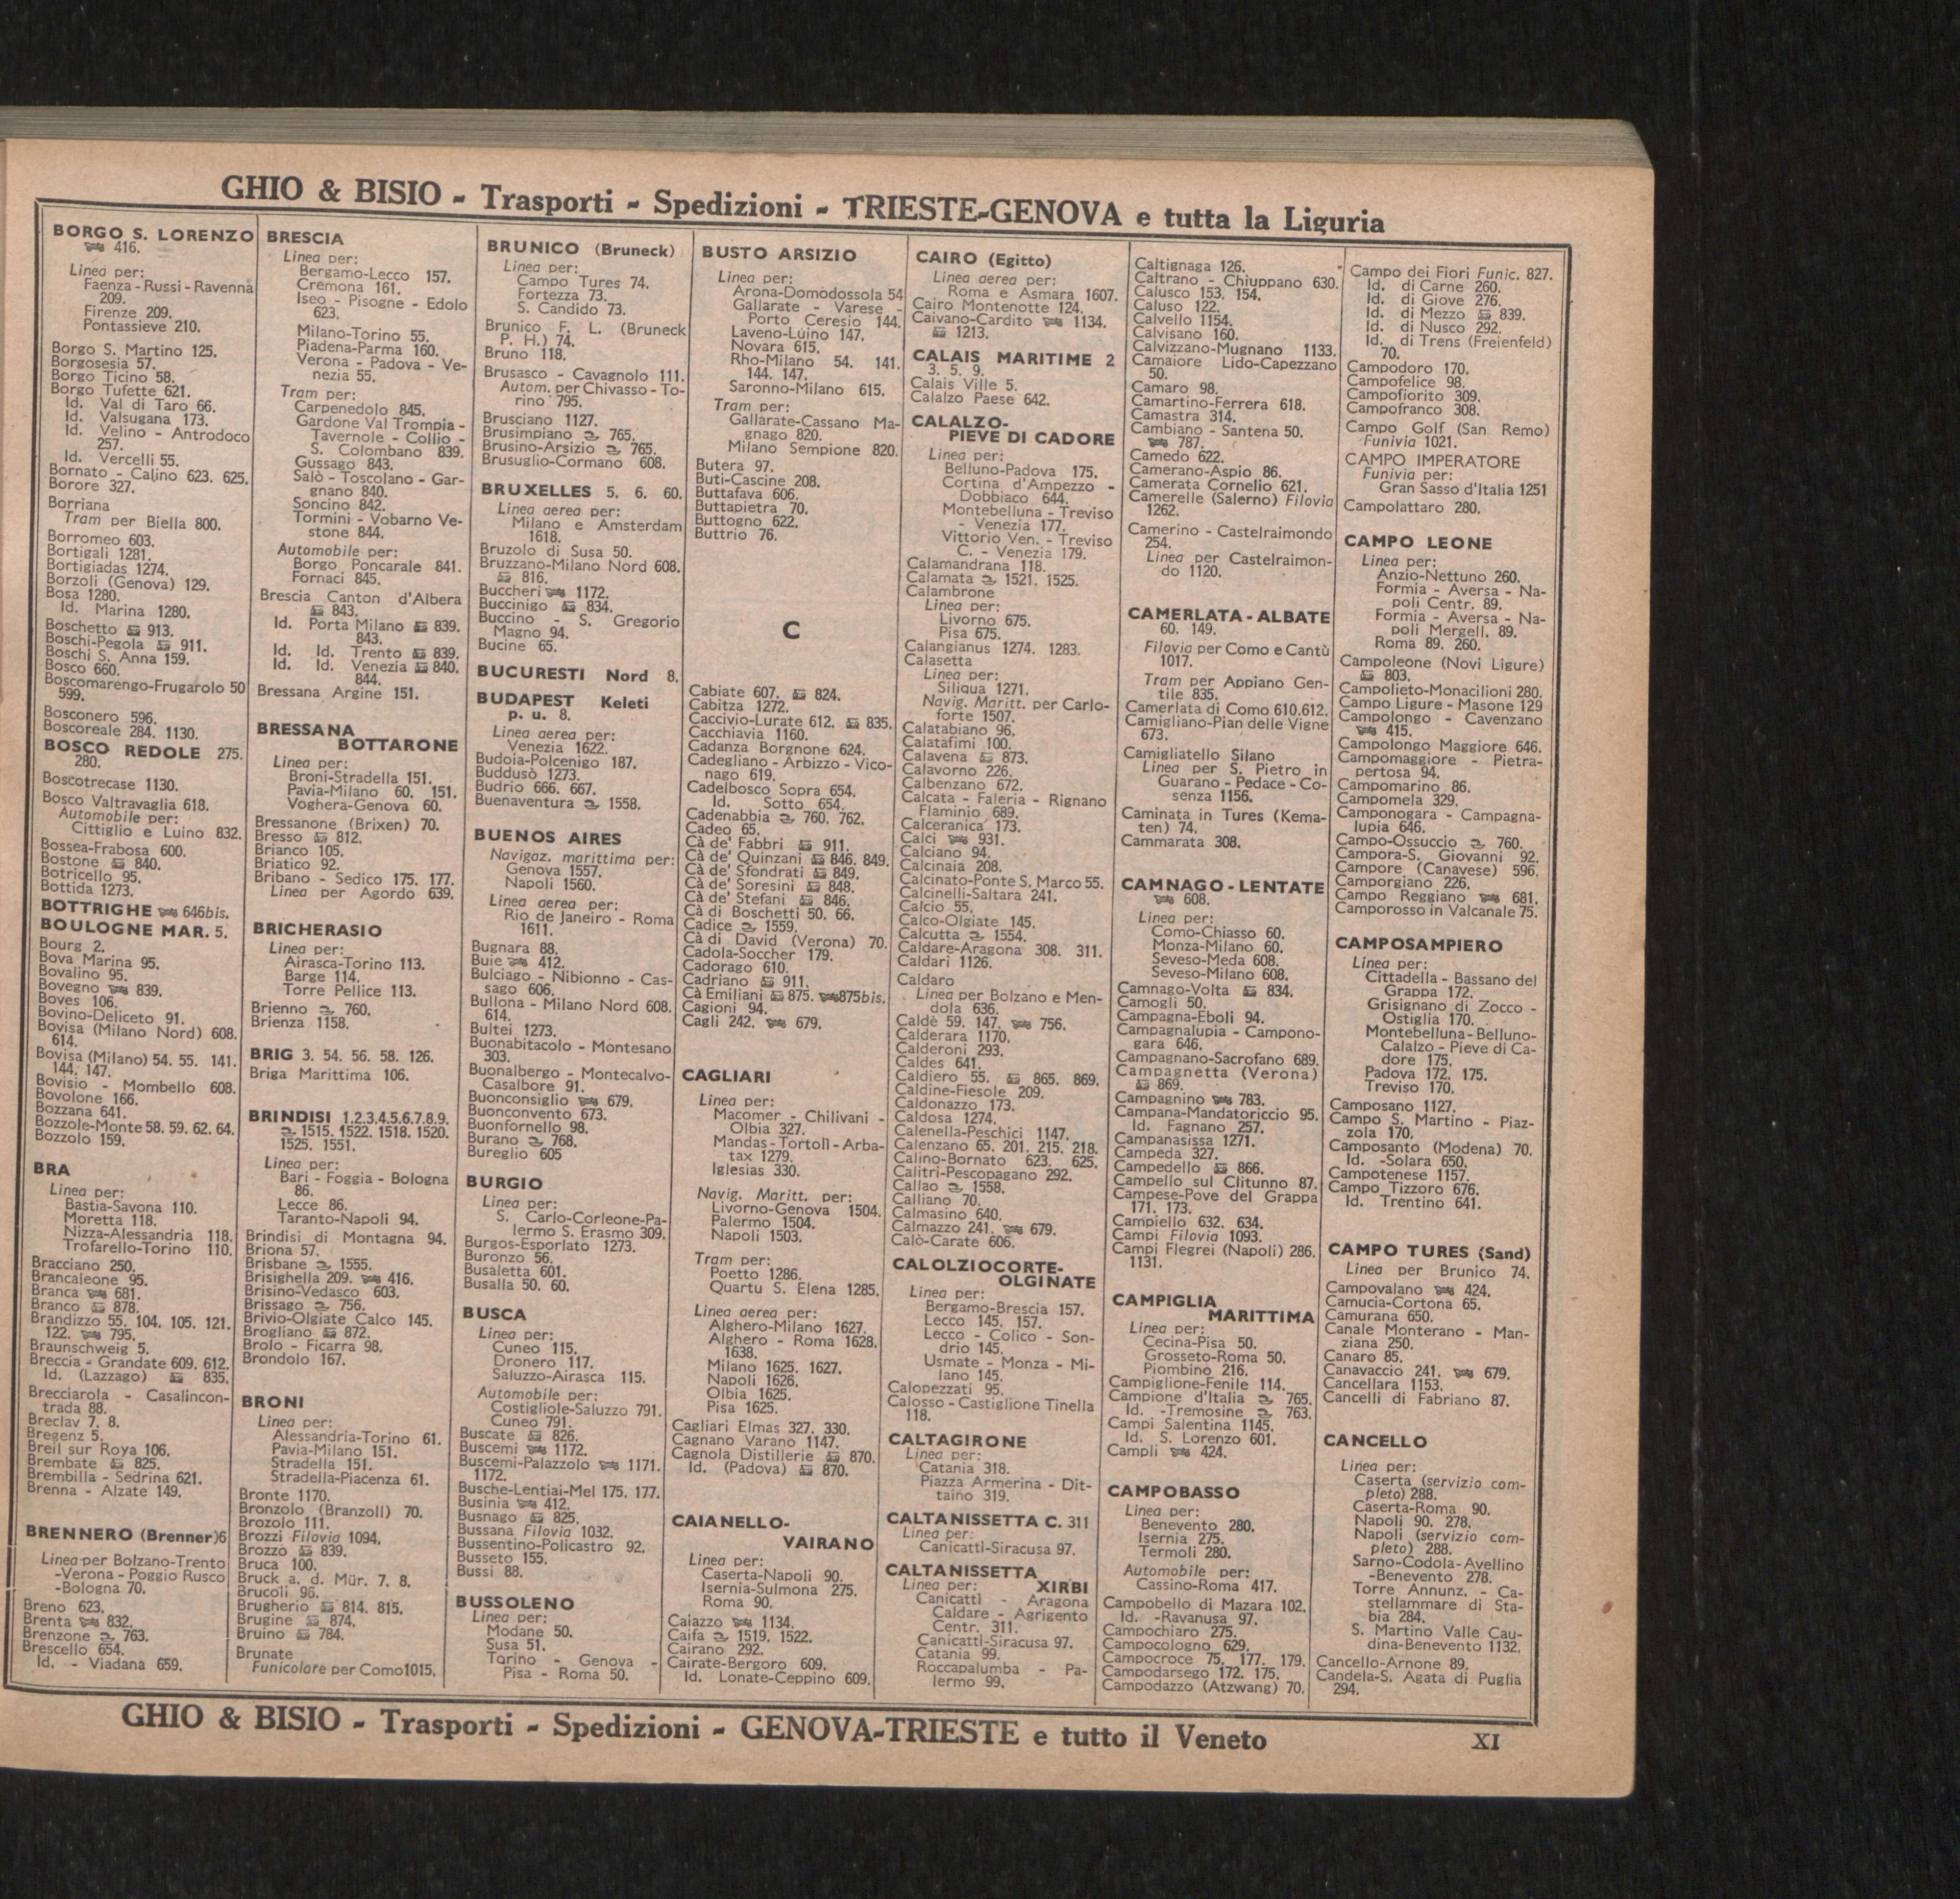 GHIO & BISIO - Trasporti - Spedizioni - TRIESTE-GENOVA e tutta la Liguria
BORGO S. LORENZO
416.
Linea per:
Faenza - Russi - Ravenna
209.
Firenze 209.
Pontassieve 210.
Borgo S. Martino 125.
Borgosesia 57.
Borgo Ticino 58.
Borgo Tufette 621.
Id. Val di Taro 66.
Id. Valsugana 173.
Id. Velino - Antrodoco
257.
Id. Vercelli 55.
Bornato - Calino 623. 625.
Borore 327.
Borriana
Tram per Biella 800.
Borromeo 603.
Bortigali 1281.
Bortigiadas 1274.
Borzoli (Genova) 129.
Bosa 1280.
Id. Marina 1280.
Boschetto 913.
Boschi-Pegola 911.
Boschi S. Anna 159.
Bosco 660.
Boscomarengo-Frugarolo 50
599.
Bosconero 596.
Boscoreale 284. 1130.
BOSCO REDOLE 275.
280.
Boscotrecase 1130.
Bosco Valtravaglia 618.
Automobile per:
Cittiglio e Luino 832.
Bossea-Frabosa 600.
Bostone 840.
Botricello 95.
Bottida 1273.
BOTTRIGHE 646bis.
BOULOGNE MAR. 5.
Bourg 2.
Bova Marina 95.
Bovalino 95.
Bovegno 839.
Boves 106.
Bovino-Deliceto 91.
Bovisa (Milano Nord) 608.
614.
Bovisa (Milano) 54. 55. 141.
144. 147.
Bovisio - Mombello 608.
Bovolone 166.
Bozzana 641.
Bozzole-Monte 58. 59. 62. 64.
Bozzolo 159.
BRA
Linea per:
Bastia-Savona 110.
Moretta 118.
Nizza-Alessandria 118.
Trofarello-Torino 110.
Bracciano 250.
Brancaleone 95.
Branca 681.
Branco 878.
Brandizzo 55. 104. 105. 121.
122. 795.
Braunschweig 5.
Breccia - Grandate 609. 612.
Id. (Lazzago) 835.
Brecciarola - Casalincon-
trada 88.
Breclav 7. 8.
Bregenz 5.
Breil sur Roya 106.
Brembate 825.
Brembilla - Sedrina 621.
Brenna - Alzate 149.
BRENNERO (Brenner) 6
Linea per Bolzano-Trento
-Verona - Poggio Rusco
-Bologna 70.
Breno 623.
Brenta 832.
Brenzone 763.
Brescello 654.
Id. - Viadana 659.
BRESCIA
Linea per:
Bergamo-Lecco 157.
Cremona 161.
Iseo - Pisogne - Edolo
623.
Milano-Torino 55.
Piadena-Parma 160.
Verona - Padova - Ve-
nezia 55.
Tram per:
Carpenedolo 845.
Gardone Val Trompia -
Tavernole - Collio -
S. Colombano 839.
Gussago 843.
Salò - Toscolano - Gar-
gnano 840.
Soncino 842.
Tormini - Vobarno Ve-
stone 844.
Automobile per:
Borgo Poncarale 841.
Fornaci 845.
Brescia Canton d'Albera
843.
Id. Porta Milano 839.
843.
Id. Id. Trento 839.
Id. Id. Venezia 840.
844.
Bressana Argine 151.
BRESSANA
BOTTARONE
Linea per:
Broni-Stradella 151.
Pavia-Milano 60. 151.
Voghera-Genova 60.
Bressanone (Brixen) 70.
Bresso 812.
Brianco 105.
Briatico 92.
Bribano - Sedico 175. 177.
Linea per Agordo 639.
BRICHERASIO
Linea per:
Airasca-Torino 113.
Barge 114.
Torre Pellice 113.
Brienno 760.
Brienza 1158.
BRIG 3. 54. 56. 58. 126.
Briga Marittima 106.
BRINDISI 1.2.3.4.5.6.7.8.9.
1515. 1522. 1518. 1520.
1525. 1551.
Linea per:
Bari - Foggia - Bologna
86.
Lecce 86.
Taranto-Napoli 94.
Brindisi di Montagna 94.
Briona 57.
Brisbane 1555.
Brisighella 209. 416.
Brisino-Vedasco 603.
Brissago 756.
Brivio-Olgiate Calco 145.
Brogliano 872.
Brolo - Ficarra 98.
Brondolo 167.
BRONI
Linea per:
Alessandria-Torino 61.
Pavia-Milano 151.
Stradella 151.
Stradella-Piacenza 61.
Bronte 1170.
Bronzolo (Branzoll) 70.
Brozolo 111.
Brozzi Filovia 1094.
Brozzo 839.
Bruca 100.
Bruck a. d. Mür. 7. 8.
Brucoli 96.
Brugherio 814. 815.
Brugine 874.
Bruino 784.
Brunate
Funicolare per Como1015.
BRUNICO (Bruneck)
Linea per:
Campo Tures 74.
Fortezza 73.
S. Candido 73.
Brunico F. L. (Bruneck
P. H.) 74.
Bruno 118.
Brusasco - Cavagnolo 111.
Autom. per Chivasso - To-
rino 795.
Brusciano 1127.
Brusimpiano 765.
Brusino-Arsizio 765.
Brusuglio-Cormano 608.
BRUXELLES 5. 6. 60.
Linea aerea per:
Milano e Amsterdam
1618.
Bruzolo di Susa 50.
Bruzzano-Milano Nord 608.
816.
Buccheri 1172.
Buccinigo 834.
Buccino - S. Gregorio
Magno 94.
Bucine 65.
BUCURESTI Nord 8.
BUDAPEST Keleti
p. u. 8.
Linea aerea per:
Venezia 1622.
Budoia-Polcenigo 187.
Buddusò 1273.
Budrio 666. 667.
Buenaventura 1558.
BUENOS AIRES
Navigaz. marittima per:
Genova 1557.
Napoli 1560.
Linea aerea per:
Rio de Janeiro - Roma
1611.
Bugnara 88.
Buie 412.
Bulciago - Nibionno - Cas-
sago 606.
Bullona - Milano Nord 608.
614.
Bultei 1273.
Buonabitacolo - Montesano
303.
Buonalbergo - Montecalvo-
Casalbore 91.
Buonconsiglio 679.
Buonconvento 673.
Buonfornello 98.
Burano 768.
Bureglio 605
BURGIO
Linea per:
S. Carlo-Corleone-Pa-
lermo S. Erasmo 309.
Burgos-Esporlato 1273.
Buronzo 56.
Busaletta 601.
Busalla 50. 60.
BUSCA
Linea per:
Cuneo 115.
Dronero 117.
Saluzzo-Airasca 115.
Automobile per:
Costigliole-Saluzzo 791.
Cuneo 791.
Buscate 826.
Buscemi 1172.
Buscemi-Palazzolo 1171.
1172.
Busche-Lentiai-Mel 175. 177.
Businia 412.
Busnago 825.
Bussana Filovia 1032.
Bussentino-Policastro 92.
Busseto 155.
Bussi 88.
BUSSOLENO
Linea per:
Modane 50.
Susa 51.
Torino - Genova -
Pisa - Roma 50.
BUSTO ARSIZIO
Linea per:
Arona-Domodossola 54
Gallarate - Varese -
Porto Ceresio 144.
Laveno-Luino 147.
Novara 615.
Rho-Milano 54. 141.
144. 147.
Saronno-Milano 615.
Tram per:
Gallarate-Cassano Ma-
gnago 820.
Milano Sempione 820.
Butera 97.
Buti-Cascine 208.
Buttafava 606.
Buttapietra 70.
Buttogno 622.
Buttrio 76.
C
Cabiate 607. 824.
Cabitza 1272.
Caccivio-Lurate 612. 835.
Cacchiavia 1160.
Cadanza Borgnone 624.
Cadegliano - Arbizzo - Vico-
nago 619.
Cadelbosco Sopra 654.
Id. Sotto 654.
Cadenabbia 760. 762.
Cadeo 65.
Cà de' Fabbri 911.
Cà de' Quinzani 846. 849.
Cà de' Sfondrati 849.
Cà de' Soresini 848.
Cà de' Stefani 846.
Cà di Boschetti 50. 66.
Cadice 1559.
Cà di David (Verona) 70.
Cadola-Soccher 179.
Cadorago 610.
Cadriano 911.
Cà Emiliani 875. 875bis.
Cagioni 94.
Cagli 242. 679.
CAGLIARI
Linea per:
Macomer - Chilivani -
Olbia 327.
Mandas-Tortolì - Arba-
tax 1279.
Iglesias 330.
Navig. Maritt. per:
Livorno-Genova 1504.
Palermo 1504.
Napoli 1503.
Tram per:
Poetto 1286.
Quartu S. Elena 1285.
Linea aerea per:
Alghero-Milano 1627.
Alghero - Roma 1628.
1638.
Milano 1625. 1627.
Napoli 1626.
Olbia 1625.
Pisa 1625.
Cagliari Elmas 327. 330.
Cagnano Varano 1147.
Cagnola Distillerie 870.
Id. (Padova) 870.
CAIANELLO-
VAIRANO
Linea per:
Caserta-Napoli 90.
Isernia-Sulmona 275.
Roma 90.
Caiazzo 1134.
Caifa 1519. 1522.
Cairano 292.
Cairate-Bergoro 609.
Id. Lonate-Ceppino 609.
CAIRO (Egitto)
Linea aerea per:
Roma e Asmara 1607.
Cairo Montenotte 124.
Caivano-Cardito 1134.
1213.
CALAIS MARITIME 2
3. 5. 9.
Calais Ville 5.
Calalzo Paese 642.
CALALZO-
PIEVE DI CADORE
Linea per:
Belluno-Padova 175.
Cortina d'Ampezzo -
Dobbiaco 644.
Montebelluna - Treviso
- Venezia 177.
Vittorio Ven. - Treviso
C. - Venezia 179.
Calamandrana 118.
Calamata 1521. 1525.
Calambrone
Linea per:
Livorno 675.
Pisa 675.
Calangianus 1274. 1283.
Calasetta
Linea per:
Siliqua 1271.
Navig. Maritt. per Carlo-
forte 1507.
Calatabiano 96.
Calatafimi 100.
Calavena 873.
Calavorno 226.
Calbenzano 672.
Calcata - Faleria - Rignano
Flaminio 689.
Calceranica 173.
Calci 931.
Calciano 94.
Calcinaia 208.
Calcinato-Ponte S. Marco 55.
Calcinelli-Saltara 241.
Calcio 55.
Calco-Olgiate 145.
Calcutta 1554.
Caldare-Aragona 308. 311.
Caldari 1126.
Caldaro
Linea per Bolzano e Men-
dola 636.
Caldè 59. 147. 756.
Calderara 1170.
Calderoni 293.
Caldes 641.
Caldiero 55. 865. 869.
Caldine-Fiesole 209.
Caldonazzo 173.
Caldosa 1274.
Calenella-Peschici 1147.
Calenzano 65. 201. 215. 218.
Calino-Bornato 623. 625.
Calitri-Pescopagano 292.
Callao 1558.
Calliano 70.
Calmasino 640.
Calmazzo 241. 679.
Calò-Carate 606.
CALOLZIOCORTE-
OLGINATE
Linea per:
Bergamo-Brescia 157.
Lecco 145. 157.
Lecco - Colico - Son-
drio 145.
Usmate - Monza - Mi-
lano 145.
Calopezzati 95.
Calosso - Castiglione Tinella
118.
CALTAGIRONE
Linea per:
Catania 318.
Piazza Armerina - Dit-
taino 319.
CALTANISSETTA C. 311
Linea per:
Canicattì-Siracusa 97.
CALTANISSETTA
XIRBI
Linea per:
Canicattì - Aragona
Caldare - Agrigento
Centr. 311.
Canicattì-Siracusa 97.
Catania 99.
Roccapalumba - Pa-
lermo 99.
Caltignaga 126.
Caltrano - Chiuppano 630.
Calusco 153. 154.
Caluso 122.
Calvello 1154.
Calvisano 160.
Calvizzano-Mugnano 1133.
Camaiore Lido-Capezzano
50.
Camaro 98.
Camartino-Ferrera 618.
Camastra 314.
Cambiano - Santena 50.
787.
Camedo 622.
Camerano-Aspio 86.
Camerata Cornelio 621.
Camerelle (Salerno) Filovia
1262.
Camerino - Castelraimondo
254.
Linea per Castelraimon-
do 1120.
CAMERLATA - ALBATE
60. 149.
Filovia per Como e Cantù
1017.
Tram per Appiano Gen-
tile 835.
Camerlata di Como 610.612.
Camigliano-Pian delle Vigne
673.
Camigliatello Silano
Linea per S. Pietro in
Guarano - Pedace - Co-
senza 1156.
Caminata in Tures (Kema-
ten) 74.
Cammarata 308.
CAMNAGO - LENTATE
608.
Linea per:
Como-Chiasso 60.
Monza-Milano 60.
Seveso-Meda 608.
Seveso-Milano 608.
Camnago-Volta 834.
Camogli 50.
Campagna-Eboli 94.
Campagnalupia - Campono-
gara 646.
Campagnano-Sacrofano 689.
Campagnetta (Verona)
869.
Campagnino 783.
Campana-Mandatoriccio 95.
Id. Fagnano 257.
Campanasissa 1271.
Campeda 327.
Campedello 866.
Campello sul Clitunno 87.
Campese-Pove del Grappa
171. 173.
Campiello 632. 634.
Campi Filovia 1093.
Campi Flegrei (Napoli) 286.
1131.
CAMPIGLIA
MARITTIMA
Linea per:
Cecina-Pisa 50.
Grosseto-Roma 50.
Piombino 216.
Campiglione-Fenile 114.
Campione d'Italia 765.
Id. -Tremosine 763.
Campi Salentina 1145.
Id. S. Lorenzo 601.
Campli 424.
CAMPOBASSO
Linea per:
Benevento 280.
Isernia 275.
Termoli 280.
Automobile per:
Cassino-Roma 417.
Campobello di Mazara 102.
Id. -Ravanusa 97.
Campochiaro 275.
Campocologno 629.
Campocroce 75. 177. 179.
Campodarsego 172. 175.
Campodazzo (Atzwang) 70.
Campo dei Fiori Funic. 827.
Id. di Carne 260.
Id. di Giove 276.
Id. di Mezzo 839.
Id. di Nusco 292.
Id. di Trens (Freienfeld)
70.
Campodoro 170.
Campofelice 98.
Campofiorito 309.
Campofranco 308.
Campo Golf (San Remo)
Funivia 1021.
CAMPO IMPERATORE
Funivia per:
Gran Sasso d'Italia 1251
Campolattaro 280.
CAMPO LEONE
Linea per:
Anzio-Nettuno 260.
Formia - Aversa - Na-
poli Centr. 89.
Formia - Aversa - Na-
poli Mergell. 89.
Roma 89. 260.
Campoleone (Novi Ligure)
803.
Campolieto-Monacilioni 280.
Campo Ligure - Masone 129
Campolongo - Cavenzano
415.
Campolongo Maggiore 646.
Campomaggiore - Pietra-
pertosa 94.
Campomarino 86.
Campomela 329.
Camponogara - Campagna-
lupia 646.
Campo-Ossuccio 760.
Campora-S. Giovanni 92.
Campore (Canavese) 596.
Camporgiano 226.
Campo Reggiano 681.
Camporosso in Valcanale 75.
CAMPOSAMPIERO
Linea per:
Cittadella - Bassano del
Grappa 172.
Grisignano di Zocco -
Ostiglia 170.
Montebelluna-Belluno-
Calalzo - Pieve di Ca-
dore 175.
Padova 172. 175.
Treviso 170.
Camposano 1127.
Campo S. Martino - Piaz-
zola 170.
Camposanto (Modena) 70.
Id. -Solara 650.
Campotenese 1157.
Campo Tizzoro 676.
Id. Trentino 641.
CAMPO TURES (Sand)
Linea per Brunico 74.
Campovalano 424.
Camucia-Cortona 65.
Camurana 650.
Canale Monterano - Man-
ziana 250.
Canaro 85.
Canavaccio 241. 679.
Cancellara 1153.
Cancelli di Fabriano 87.
CANCELLO
Linea per:
Caserta (servizio com-
pleto) 288.
Caserta-Roma 90.
Napoli 90. 278.
Napoli (servizio com-
pleto) 288.
Sarno-Codola-Avellino
-Benevento 278.
Torre Annunz. - Ca-
stellammare di Sta-
bia 284.
S. Martino Valle Cau-
dina-Benevento 1132.
Cancello-Arnone 89.
Candela-S. Agata di Puglia
294.
GHIO & BISIO - Trasporti - Spedizioni - GENOVA-TRIESTE e tutto il Veneto
XI